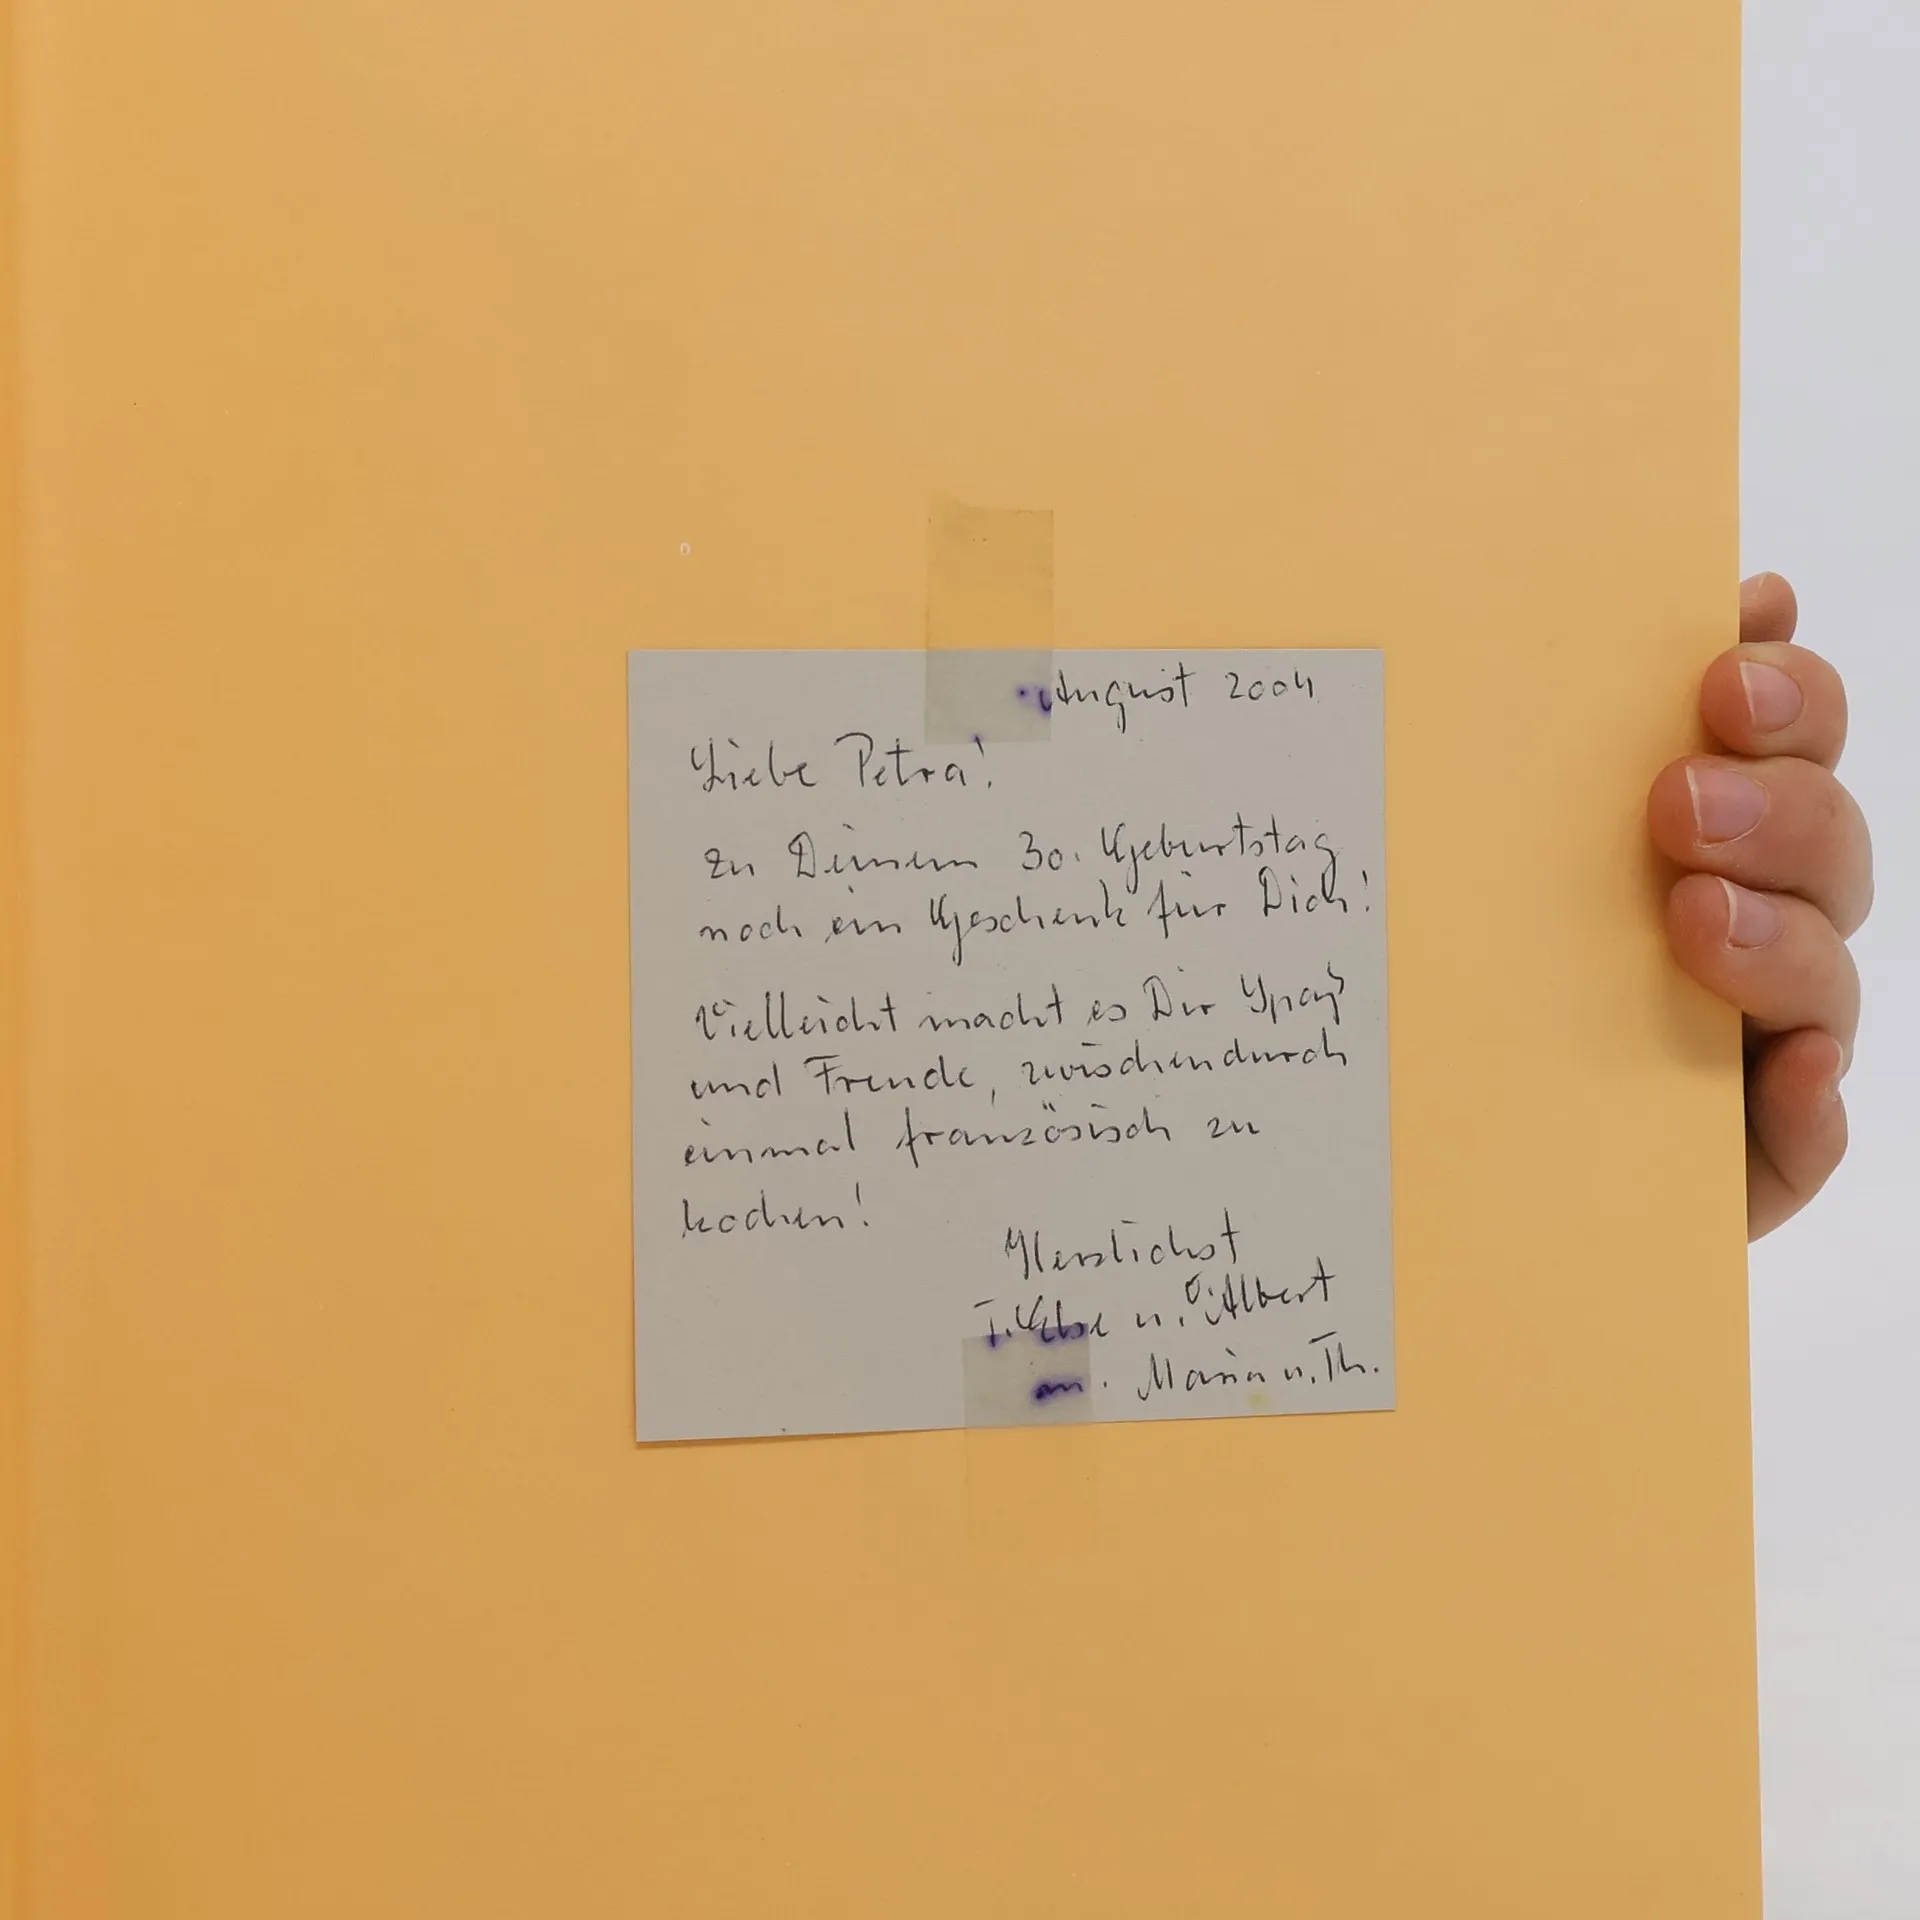 August 2004
Liebe Petra!
zu Deinem 30. Geburtstag
noch ein Geschenk für Dich!
Vielleicht macht es Dir Spaß
und Freude, zwischendurch
einmal französisch zu
kochen!
Herzlichst
T. Else u. O. Albert
m. Maria u. Th.